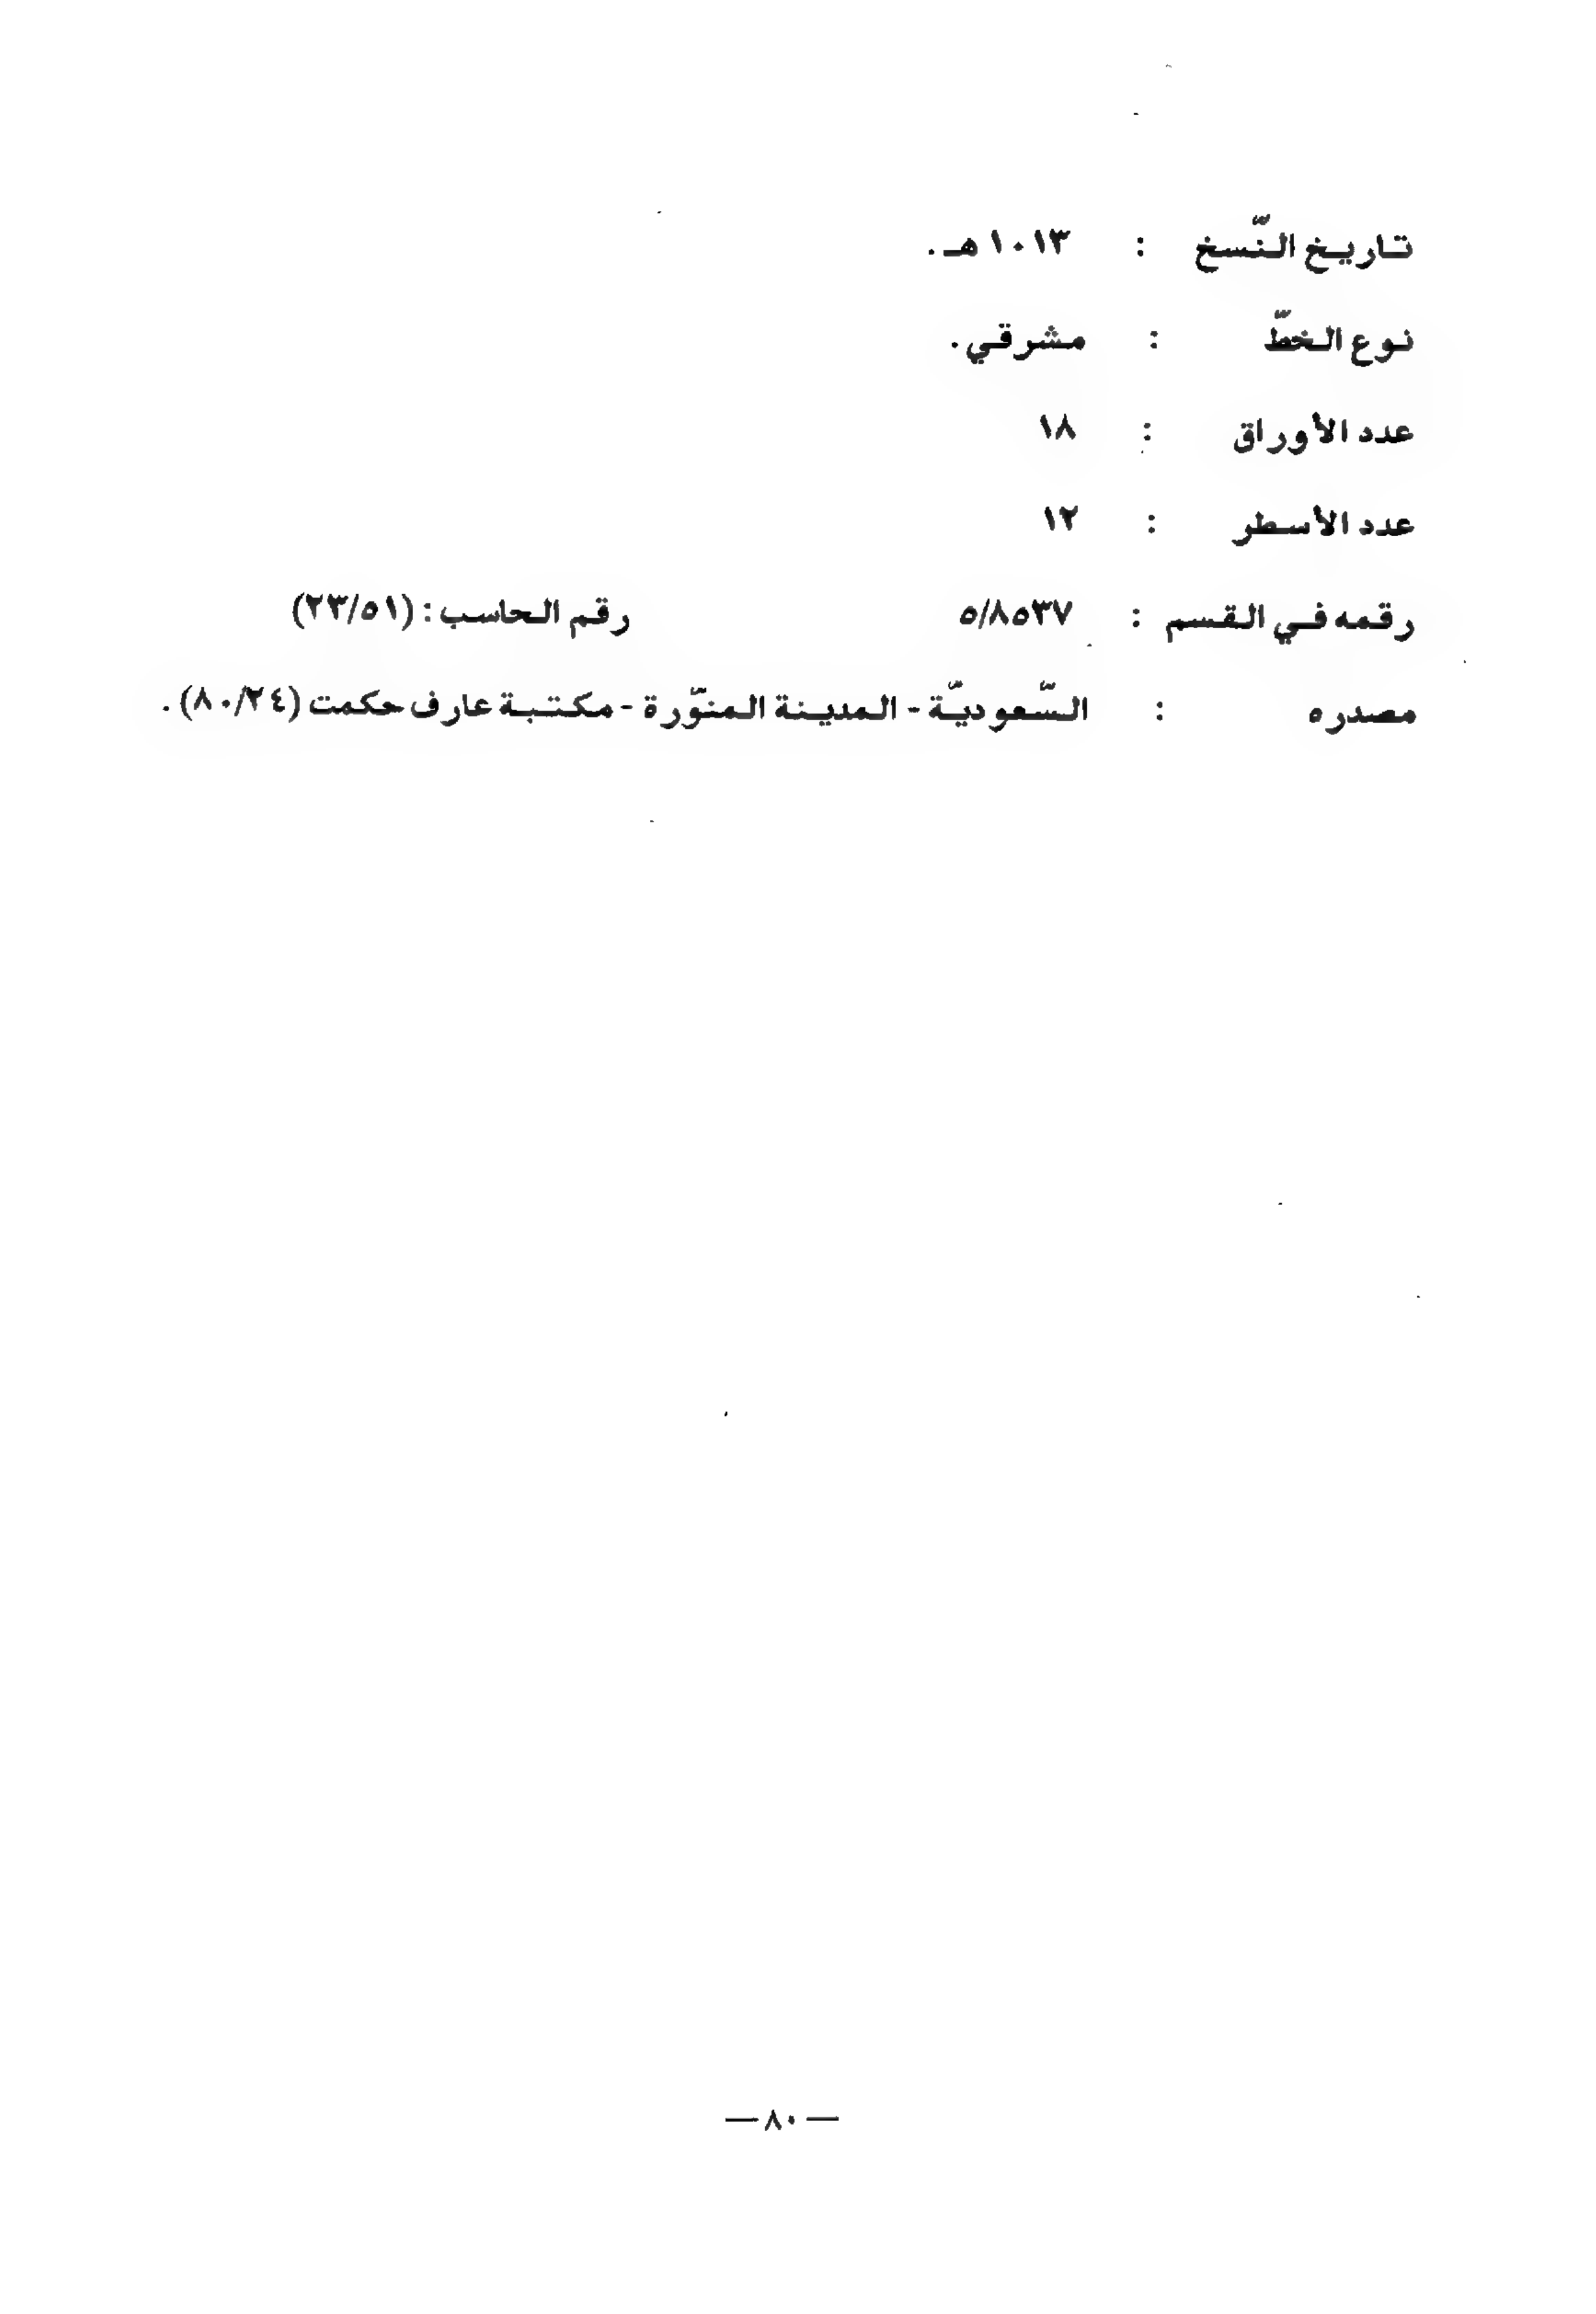 تاريخ النّسخ : ١٠١٣ هـ .
نوع الخطّ : مشرقي .
عدد الأوراق : ١٨
عدد الأسطر : ١٢
رقمه في القسم : ٥/٨٥٣٧ رقم الحاسب : (٢٣/٥١)
مصدره : السّعوديّة - المدينة المنوّرة - مكتبة عارف حكمت (٨٠/٢٤) .
— ٨٠ —